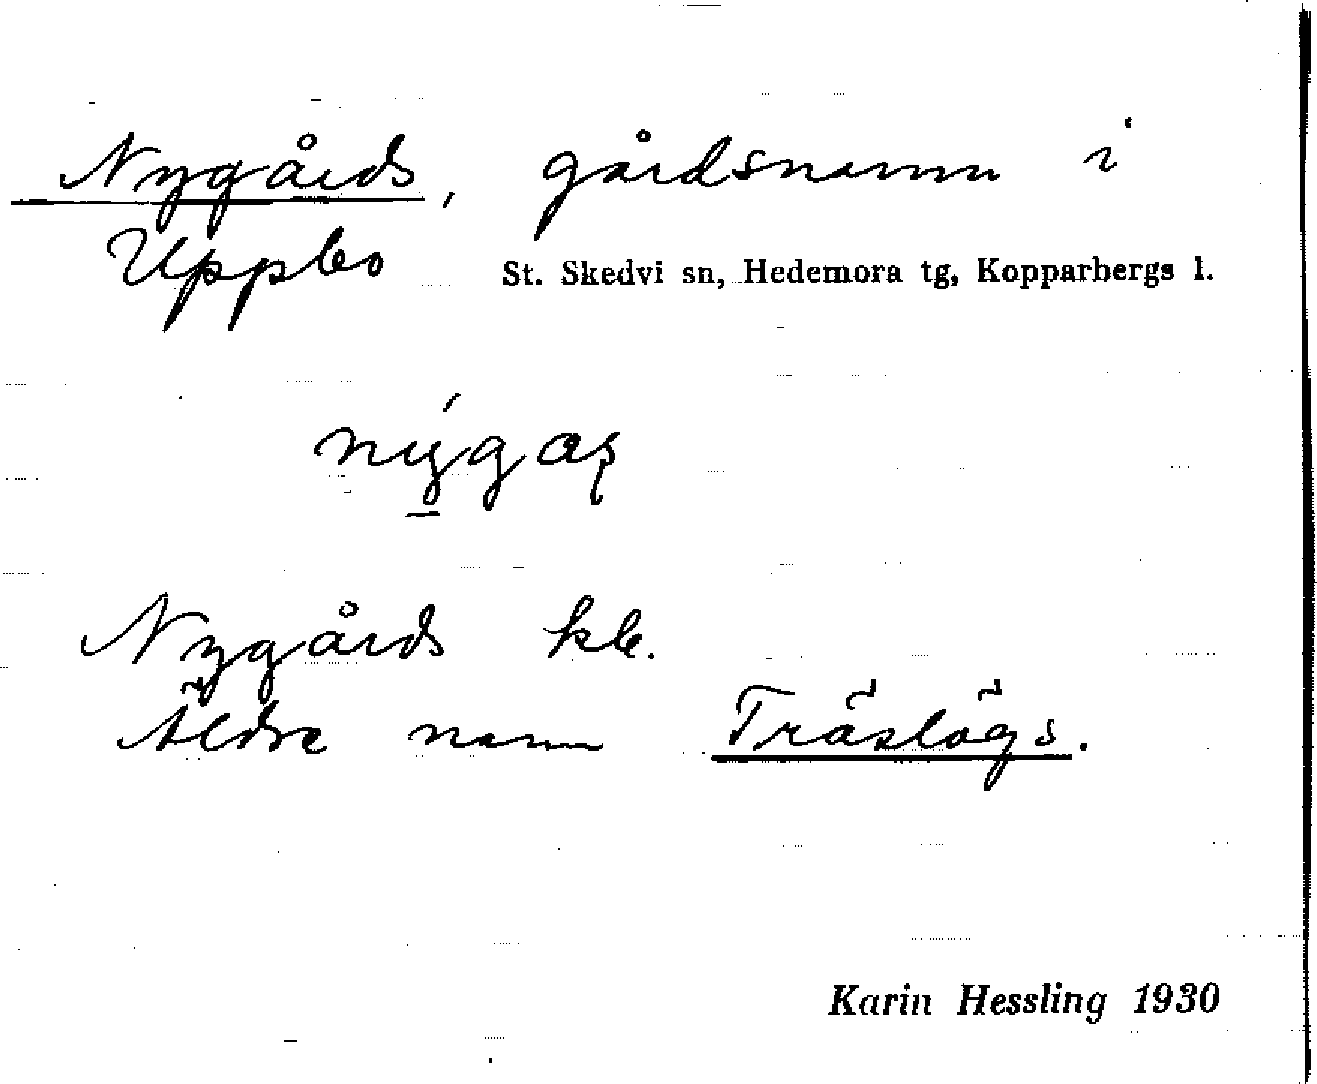 Nygårds, gårdsnamn i
Uppbo St. Skedvi sn, Hedemora tg, Kopparbergs l.
Nygårds kb.
Äldre namn Träslögs.
Karin Hessling 1930